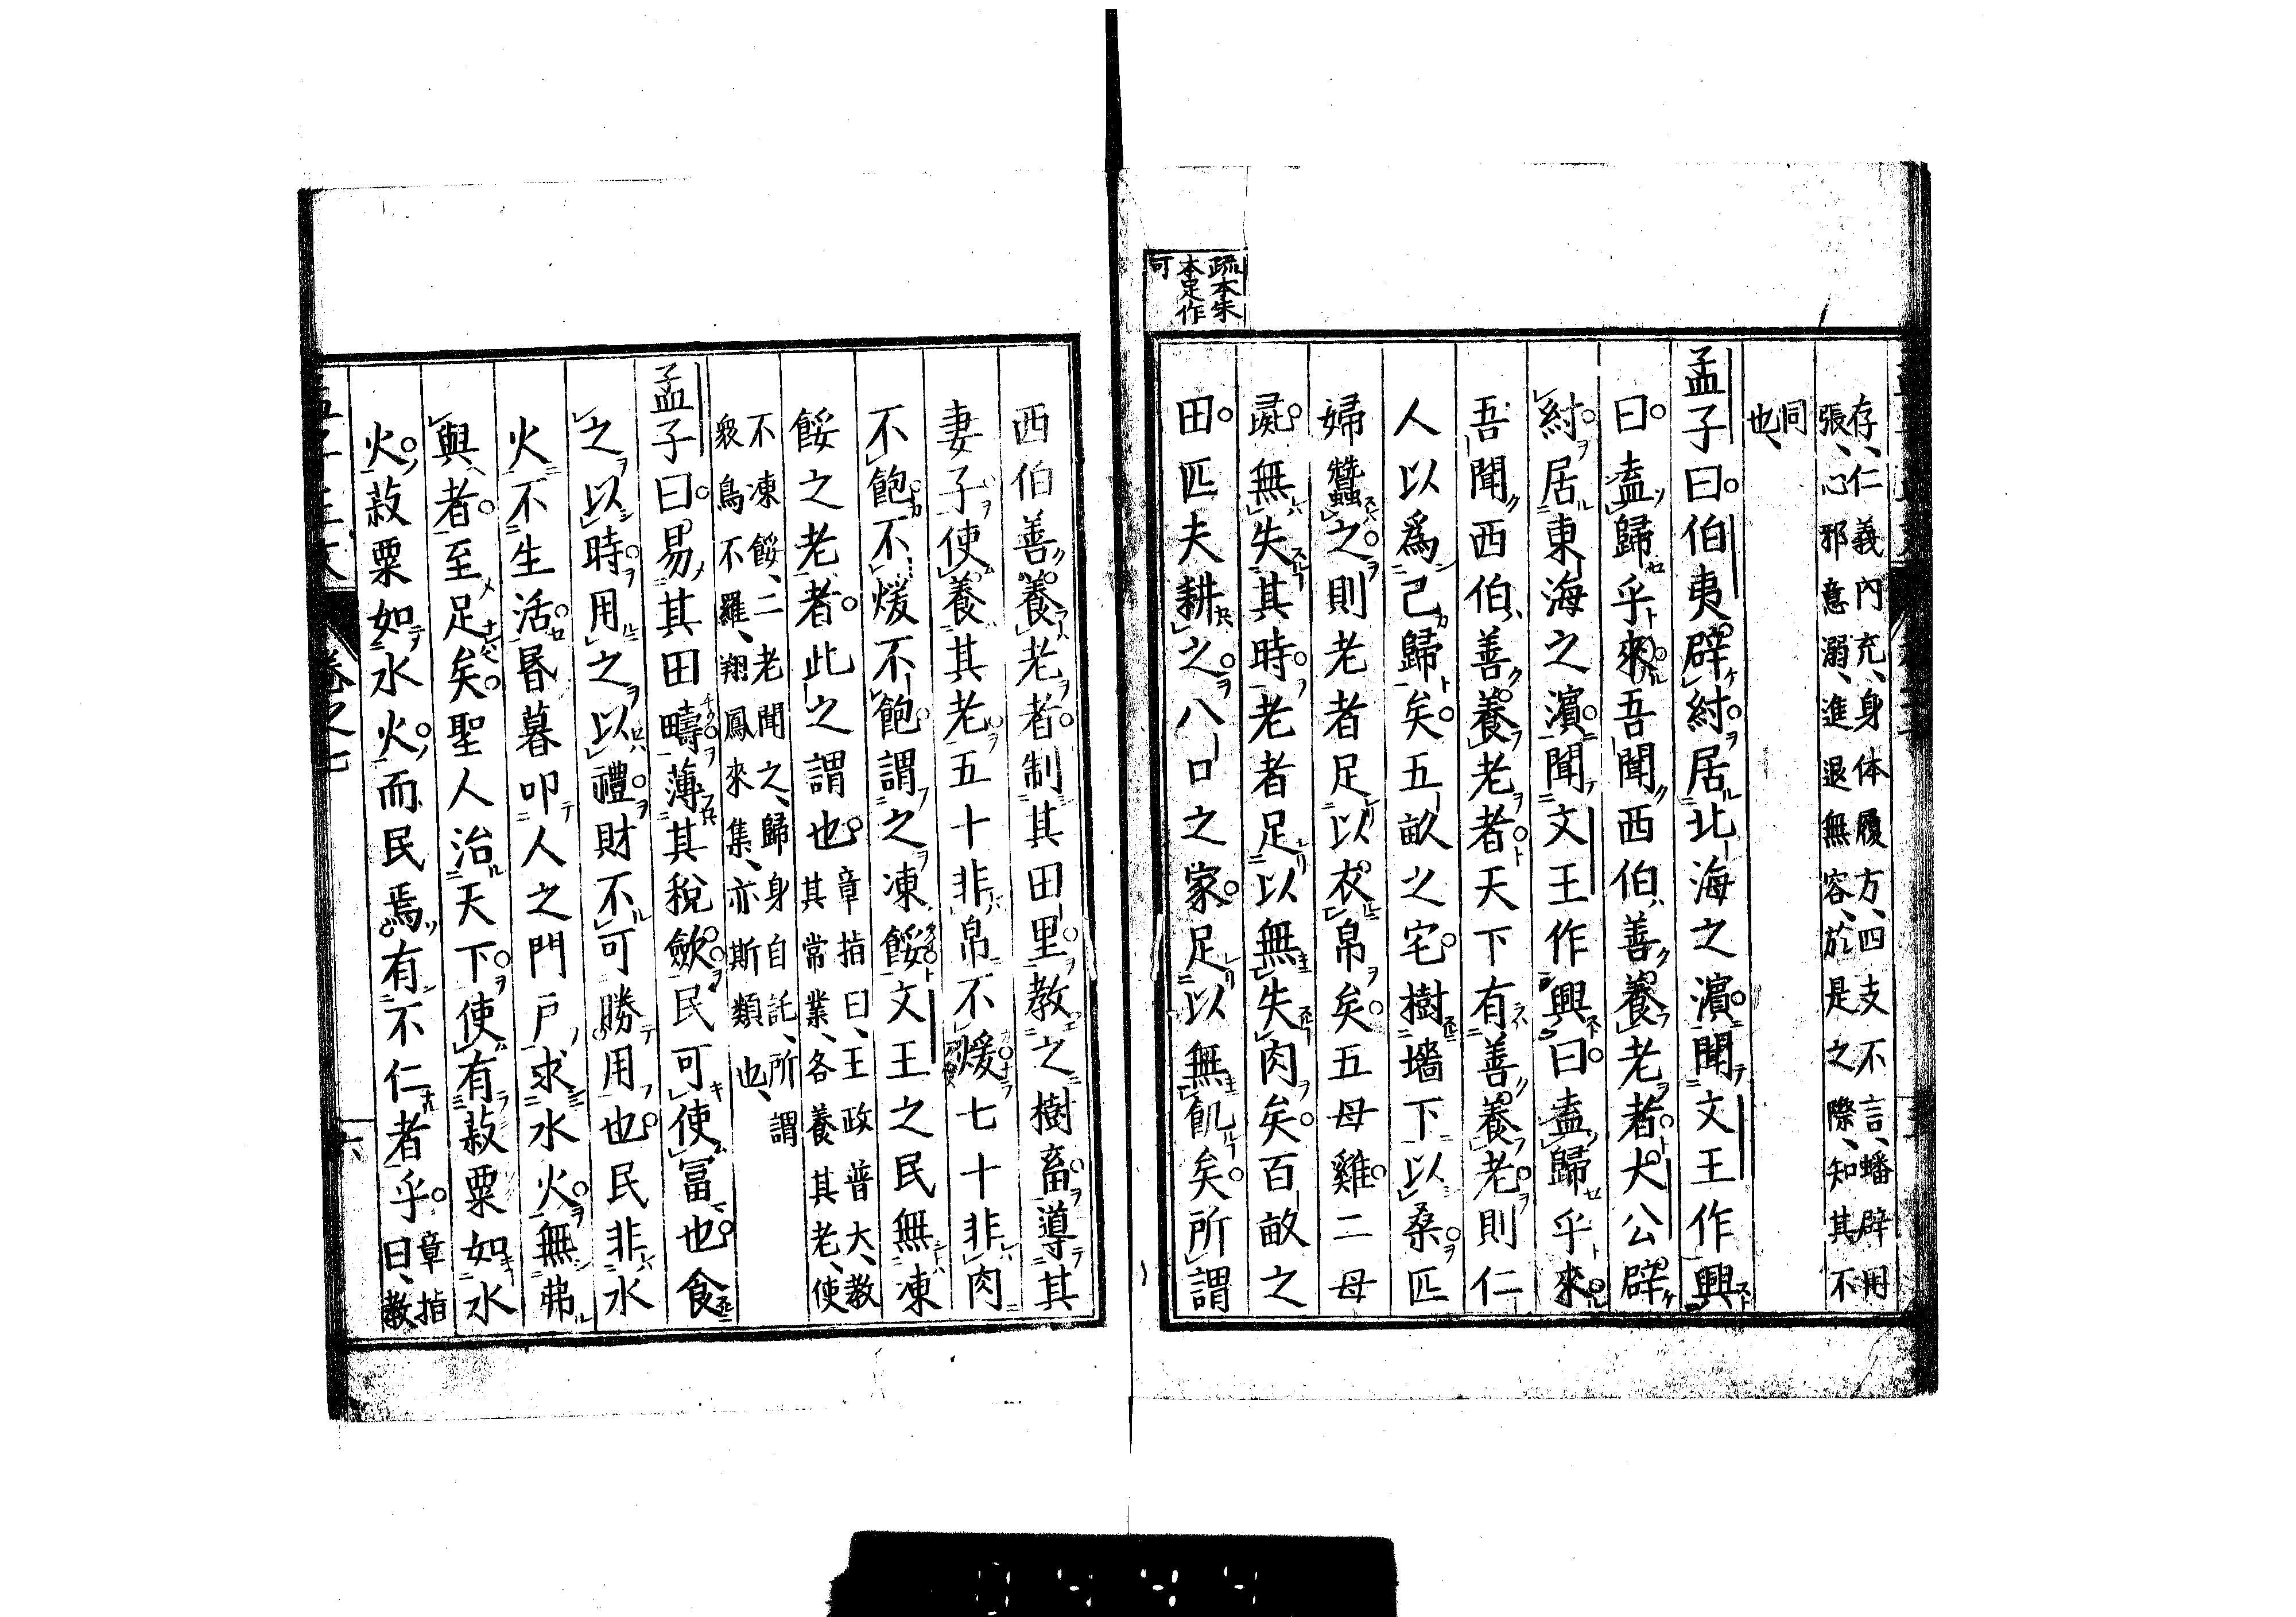 疏本朱
本足作
可
存、仁義内充、身体履方、四支不言、蟠辟用
張、心邪意溺、進退無容、於是之際、知其不
同
也、
孟子曰伯夷辟紂居北海之濱聞文王作興
曰盍歸乎來吾聞西伯善養老者太公辟
紂居東海之濱聞文王作興曰盍歸乎來
吾聞西伯善養老者天下有善養老則仁
人以爲己歸矣五畝之宅樹墻下以桑匹
婦蠶之則老者足以衣帛矣五母雞二母
彘無失其時老者足以無失肉矣百畝之
田匹夫耕之八口之家足以無飢矣所謂
西伯善養老者制其田里教之樹畜導其
妻子使養其老五十非帛不煖七十非肉
不飽不煖不飽謂之凍餒文王之民無凍
餒之老者此之謂也
章指曰、王政普大、教
其常業、各養其老、使
不凍餒、二老聞之、歸身自託、所謂
衆鳥不羅、翔鳳來集、亦斯類也、
孟子曰易其田疇薄其稅歛民可使冨也食
之以時用之以禮財不可勝用也民非水
火不生活昬暮叩人之門戸求水火無弗
與者至足矣聖人治天下使有菽粟如水
火菽粟如水火而民焉有不仁者乎
章指
曰、教
卷之七
六